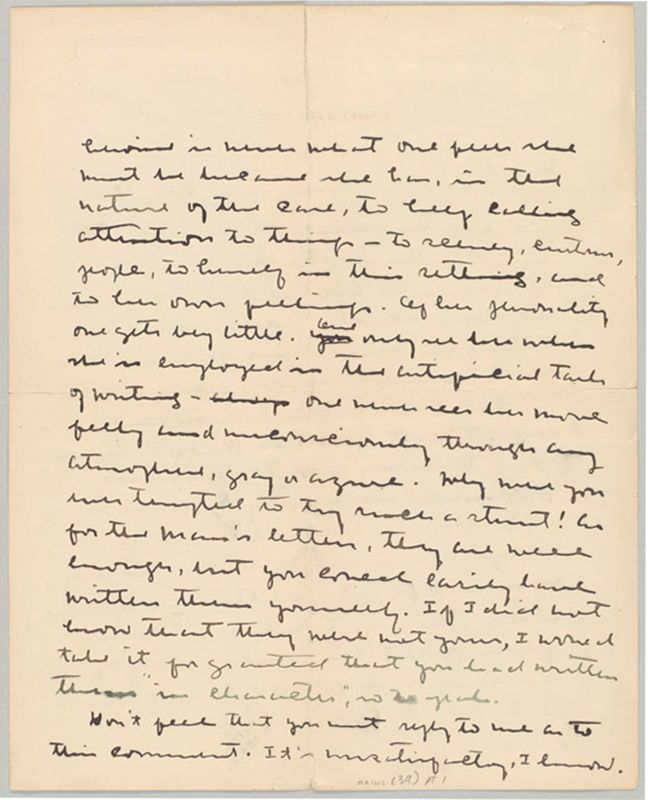 heroine is never what one feels she
must be because she has, in the
nature of the case, to keep calling
attention to things – to scenery, customs,
people, to herself in this setting, and
to her own feelings. Of her personality
one gets very little. You one only see her when
she is employed in the artificial task
of writing – always one never sees her move
freely and unconsciously through any
atmosphere, gray or azure. Why were you
ever tempted to try such a stunt! As
for the man's letters, they are well
enough, but you could easily have
written them yourself. If I did not
know that they were not yours, I would
take it for granted that you had written
them "in character", so to speak.
Don't feel that you must reply to me as to
this comment. It's unsatisfactory, I know.
(39) pt 1